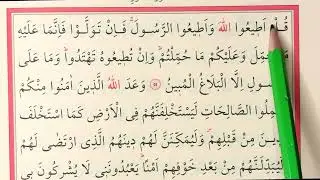 قُلْ اَطِيعُوا اللّٰهَ وَاَطِيعُوا الرَّسُولَۚ فَاِنْ تَوَلَّوْا فَاِنَّمَا عَلَيْهِ
حُمِّلَ وَعَلَيْكُمْ مَا حُمِّلْتُمْۜ وَاِنْ تُطِيعُوهُ تَهْتَدُواۜ وَمَا عَلَى
الرَّسُولِ اِلَّا الْبَلَاغُ الْمُبِينُ وَعَدَ اللّٰهُ الَّذِينَ اٰمَنُوا مِنْكُمْ
وَعَمِلُوا الصَّالِحَاتِ لَيَسْتَخْلِفَنَّهُمْ فِي الْاَرْضِ كَمَا اسْتَخْلَفَ
الَّذِينَ مِنْ قَبْلِهِمْۖ وَلَيُمَكِّنَنَّ لَهُمْ دِينَهُمُ الَّذِي ارْتَضٰى لَهُمْ
وَلَيُبَدِّلَنَّهُمْ مِنْ بَعْدِ خَوْفِهِمْ اَمْنًاۜ يَعْبُدُونَنِي لَا يُشْرِكُونَ بِي